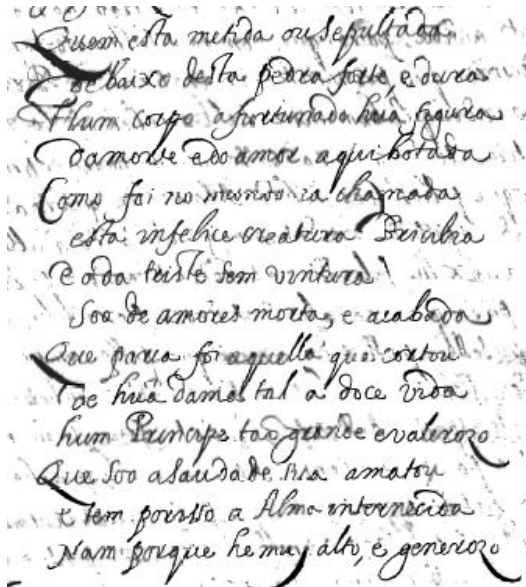 Quem esta metida ou sepultada
de baixo desta pedra forte, e dura
Hum corpo afurtunado huã figura
damorte edo amor aqui botada
Como foi no mundo ia chamada
esta infelice creatura Bricibia
E ada triste sem vintura
Soo de amores morta, e acabada
Que parca foi aquella que cortou
de huã dama tal a doce vida
hum Principe tao grande evalerozo
Que soo asaudade sua amatou
e tem porisso a Alma internecida
Nam porque he muy alto, e generozo